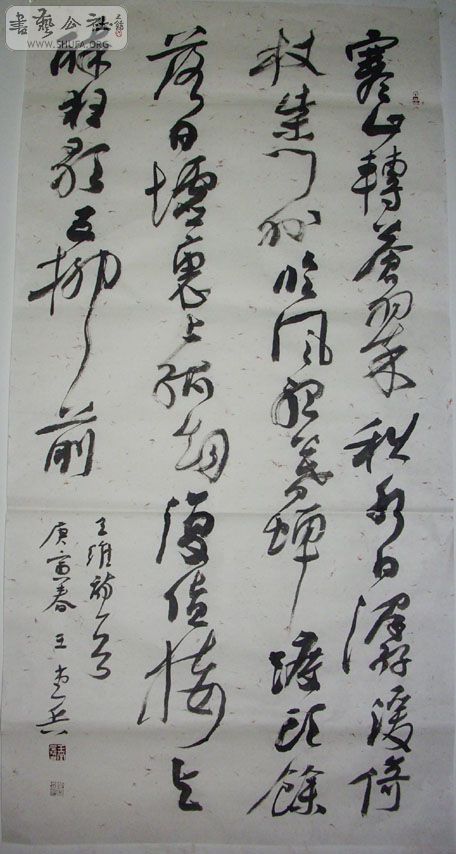 書藝公社
WWW.SHUFA.ORG
寒山轉蒼翠秋水日潺湲倚
杖柴門外臨風聽暮蟬渡頭餘
落日墟裏上孤烟復值接輿
醉狂歌五柳前
王維詩一首
庚寅春 王 兵